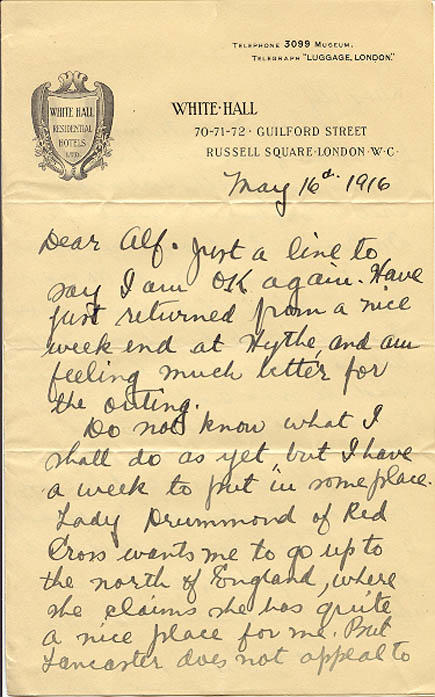 TELEPHONE 3099 MUSEUM.
TELEGRAPH "LUGGAGE, LONDON."
WHITE HALL
RESIDENTIAL
HOTELS
LTD.
WHITE·HALL
70-71-72 · GUILFORD STREET
RUSSELL SQUARE·LONDON·W·C·
May 16d. 1916
Dear Alf. Just a line to
say I am OK again. Have
just returned from a nice
week end at Hythe, and am
feeling much better for
the outing.
Do not know what I
shall do as yet, but I have
a week to put in someplace.
Lady Drummond of Red
Cross wants me to go up to
the north of England, where
she claims she has quite
a nice place for me. But
Lancaster does not appeal to